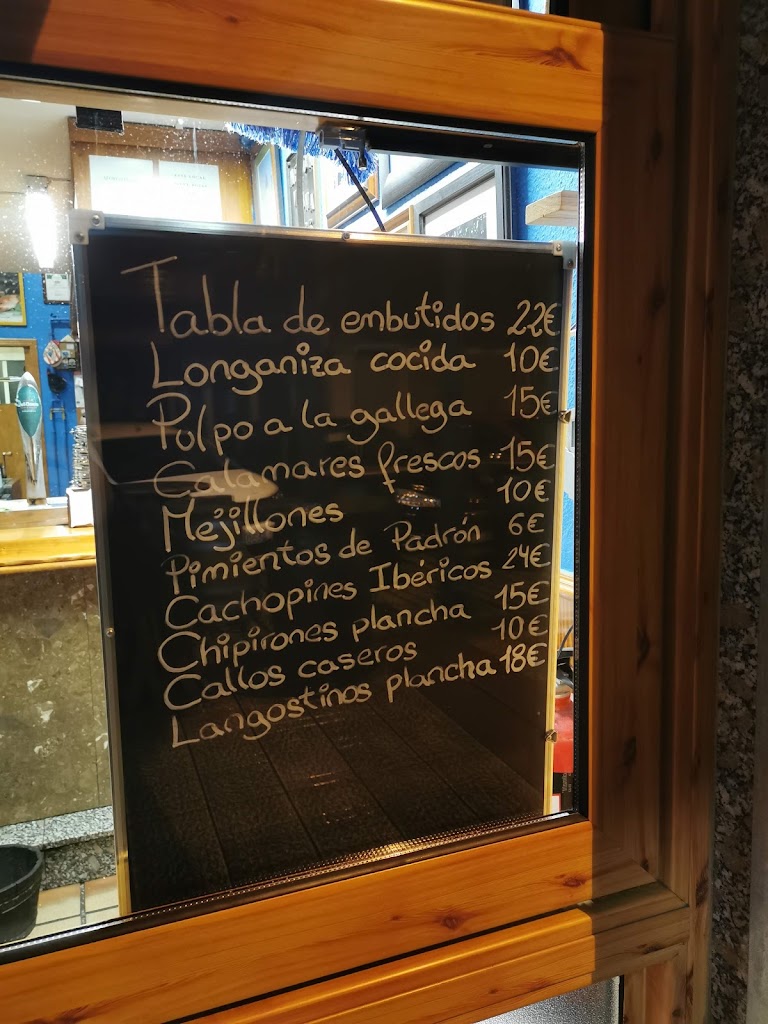 Tabla de embutidos 22€
Longaniza cocida 10€
Pulpo a la gallega 15€
Calamares frescos 15€
Mejillones 10€
Pimientos de Padrón 6€
Cachopines Ibéricos 24€
Chipirones plancha 15€
Callos caseros 10€
Langostinos plancha 18€